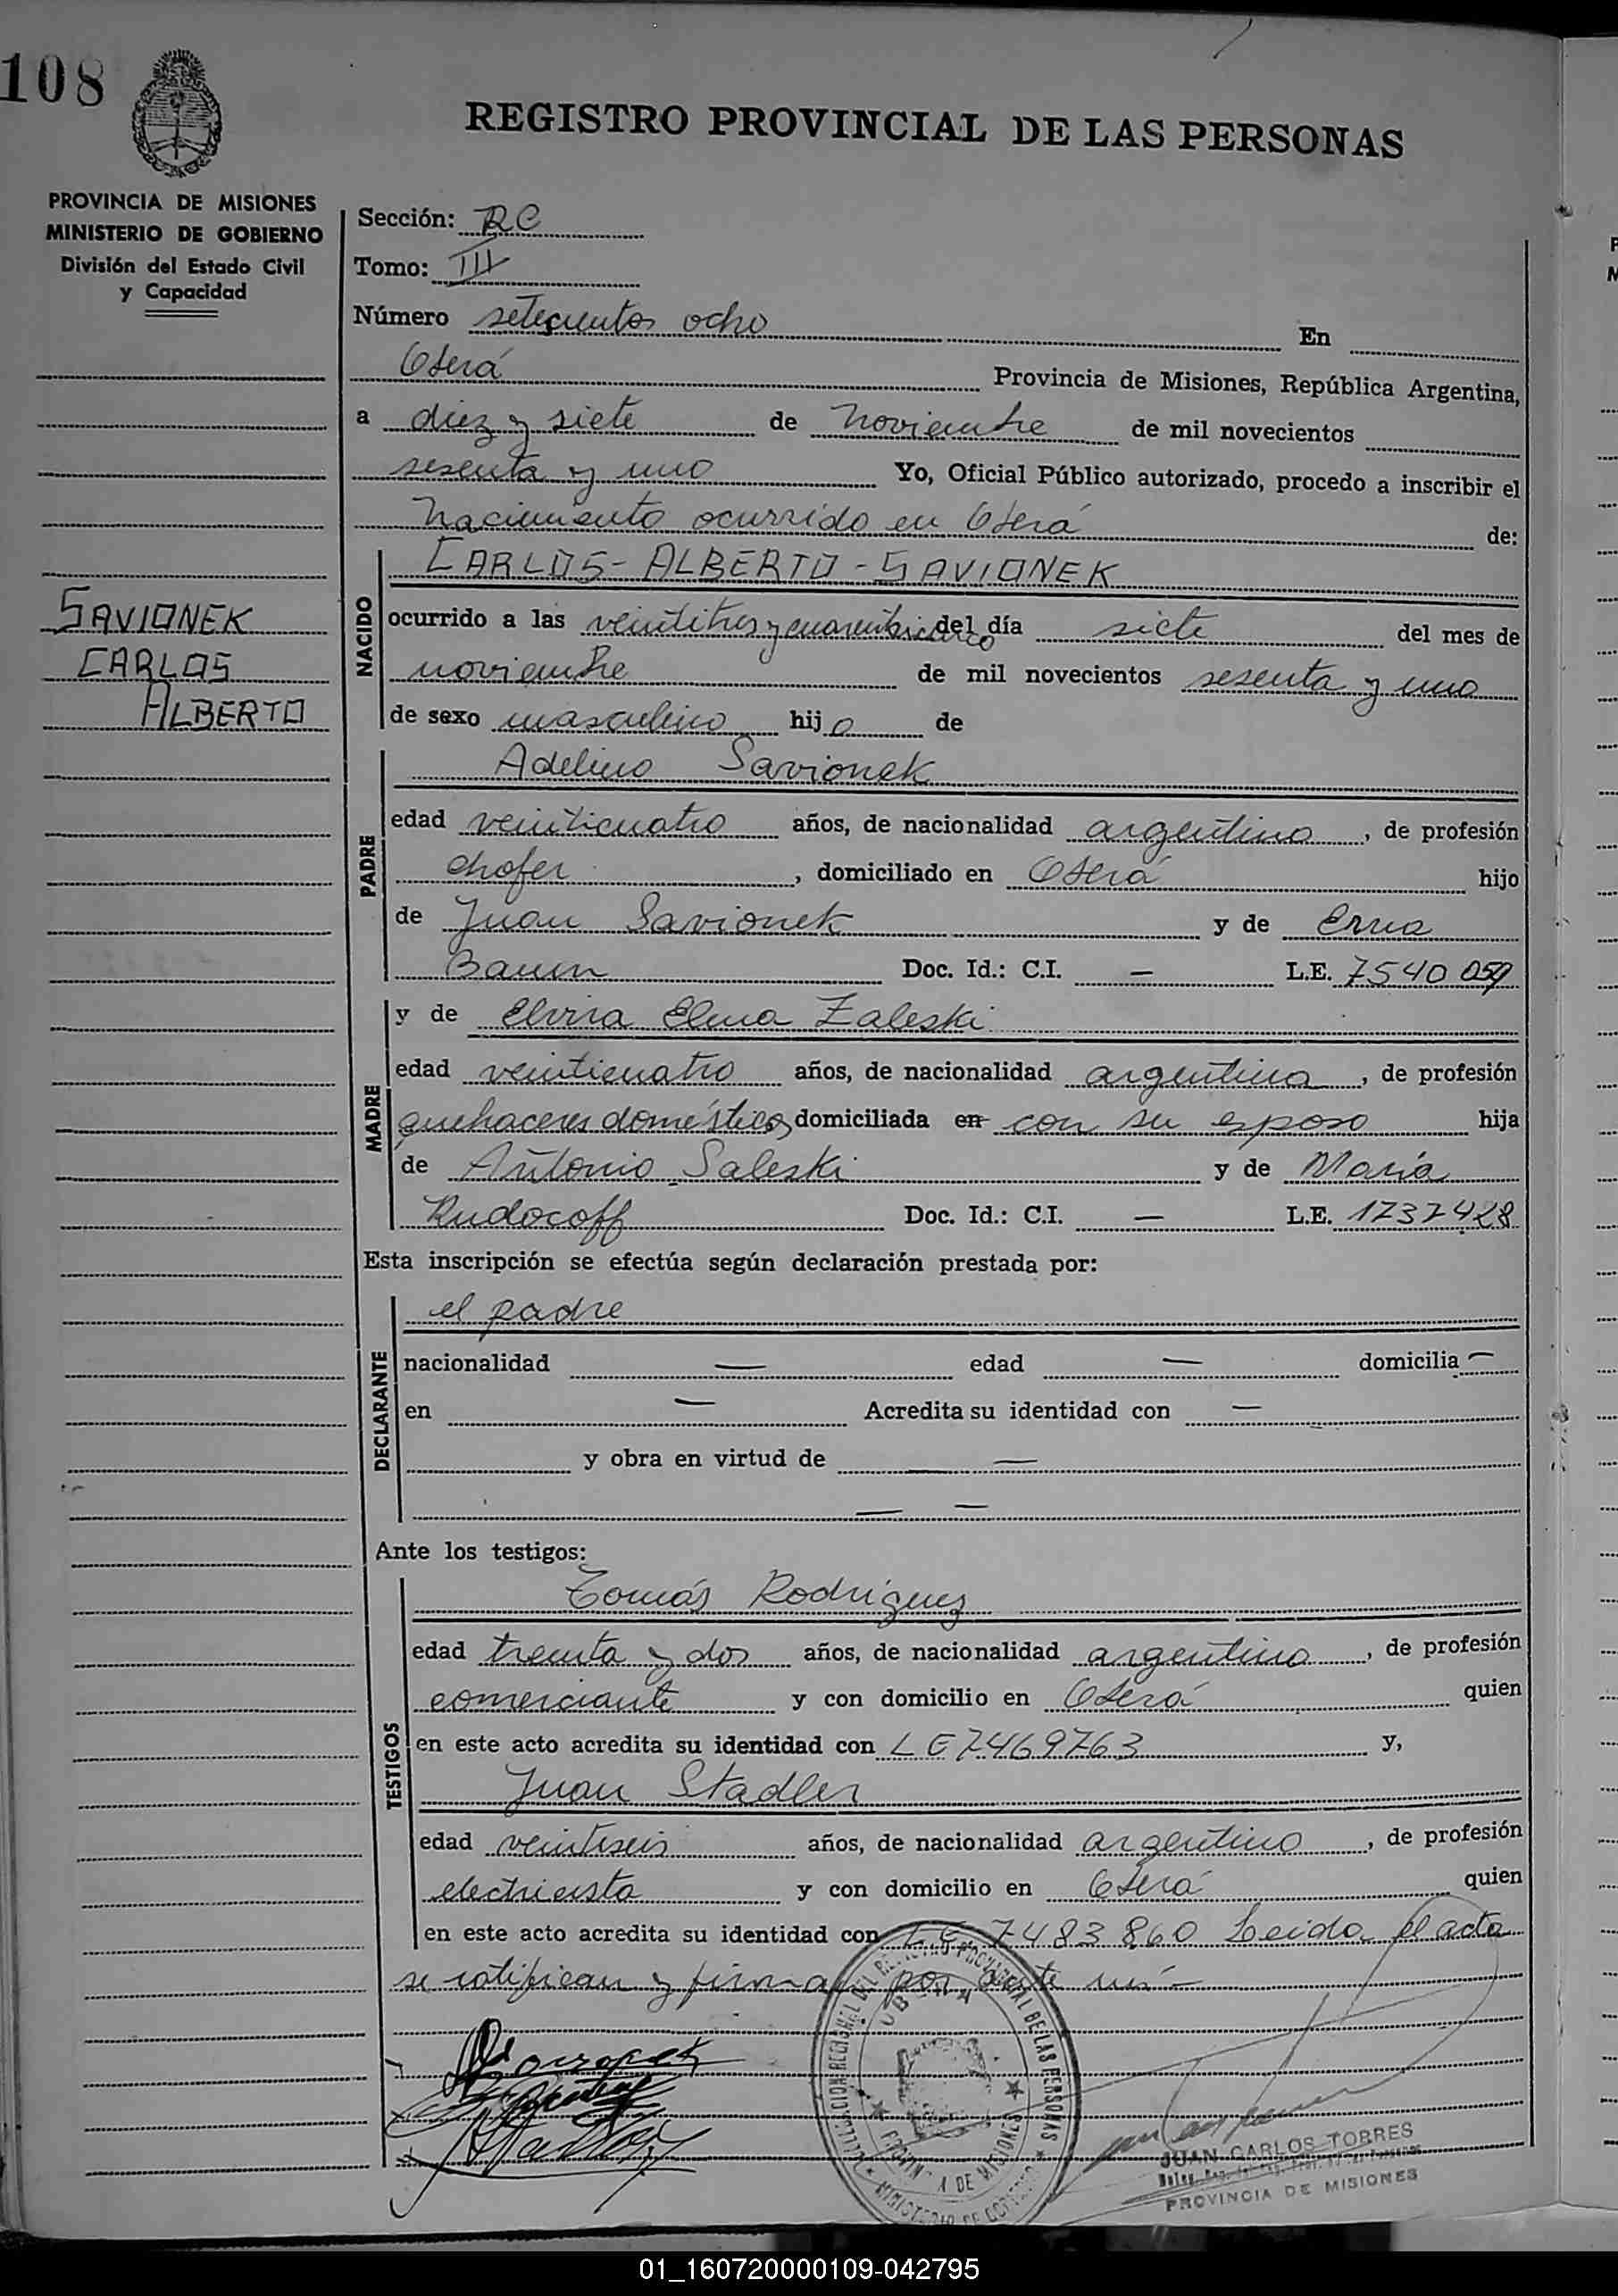 108
REGISTRO PROVINCIAL DE LAS PERSONAS
PROVINCIA DE MISIONES
MINISTERIO DE GOBIERNO
División del Estado Civil
y Capacidad
Sección: RC
Tomo: III
Número setecientos ocho En
Oberá Provincia de Misiones, República Argentina,
a diez y siete de Noviembre de mil novecientos
sesenta y uno Yo, Oficial Público autorizado, procedo a inscribir el
Nacimiento ocurrido en Oberá de:
SAVIONEK
CARLOS
ALBERTO
NACIDO
CARLOS-ALBERTO-SAVIONEK
ocurrido a las veintitres y cuarenticinco del día siete del mes de
noviembre de mil novecientos sesenta y uno
de sexo masculino hijo de
PADRE
Adelino Savionek
edad veinticuatro años, de nacionalidad argentino, de profesión
chofer, domiciliado en Oberá hijo
de Juan Savionek y de Erna
Bauen Doc. Id.: C.I. — L.E. 7540059
MADRE
y de Elvira Elena Zaleski
edad veinticuatro años, de nacionalidad argentina, de profesión
quehaceres domésticos domiciliada en con su esposo hija
de Antonio Saleski y de María
Rudocoff Doc. Id.: C.I. — L.E. 1737428
Esta inscripción se efectúa según declaración prestada por:
DECLARANTE
el padre
nacionalidad — edad — domicilia —
en — Acredita su identidad con —
y obra en virtud de —
— —
Ante los testigos:
TESTIGOS
Tomás Rodriguez
edad treinta y dos años, de nacionalidad argentino, de profesión
comerciante y con domicilio en Oberá quien
en este acto acredita su identidad con LE 7469763 y,
Juan Stadler
edad veintiseis años, de nacionalidad argentino, de profesión
electricista y con domicilio en Oberá quien
en este acto acredita su identidad con LE 7483860 Leida el acta
se ratifican y firman por ante mí.—
DELEGACION REGIONAL DEL REGISTRO PROVINCIAL DE LAS PERSONAS
OBERA
PROVINCIA DE MISIONES
MINISTERIO DE GOBIERNO
JUAN CARLOS TORRES
PROVINCIA DE MISIONES
01_160720000109-042795